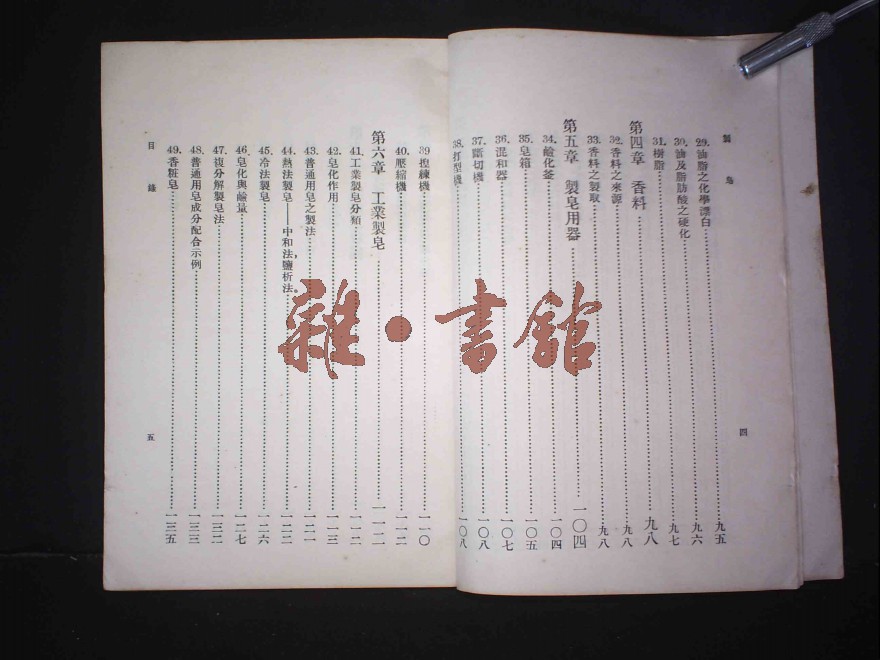 製皂
29. 油脂之化學漂白……九五
30. 油及脂肪酸之硬化……九六
31. 樹脂……九七
第四章 香料……九八
32. 香料之來源……九八
33. 香料之製取……九八
第五章 製皂用器……一〇四
34. 鹼化釜……一〇四
35. 皂箱……一〇五
36. 混和器……一〇七
37. 斷切機……一〇八
38. 打型機……一〇八
四
39. 捏練機……一一〇
40. 壓縮機……一一二
第六章 工業製皂……一一二
41. 工業製皂分類……一一二
42. 皂化作用……一一三
43. 普通用皂之製法……一二一
44. 熱法製皂——中和法，鹽析法……一二三
45. 冷法製皂……一二六
46. 皂化與鹼量……一二七
47. 複分解製皂法……一三二
48. 普通用皂成分配合示例……一三三
49. 香粧皂……一三五
目錄
五
雜·書館